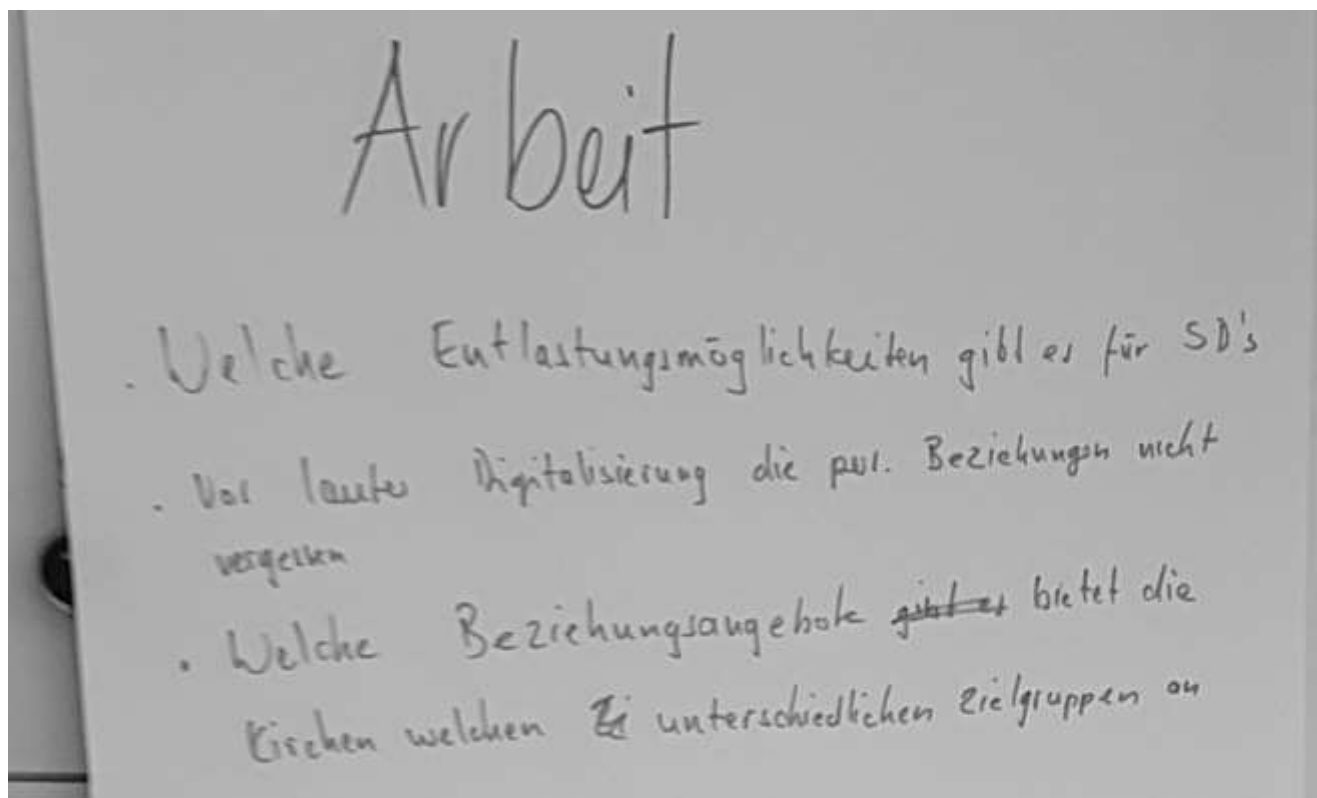 Arbeit
· Welche Entlastungsmöglichkeiten gibt es für SD's
· Vor lauter Digitalisierung die per. Beziehungen nicht
vergessen
· Welche Beziehungsangebote gibt es bietet die
Kirchen welchen Zi unterschiedlichen Zielgruppen an